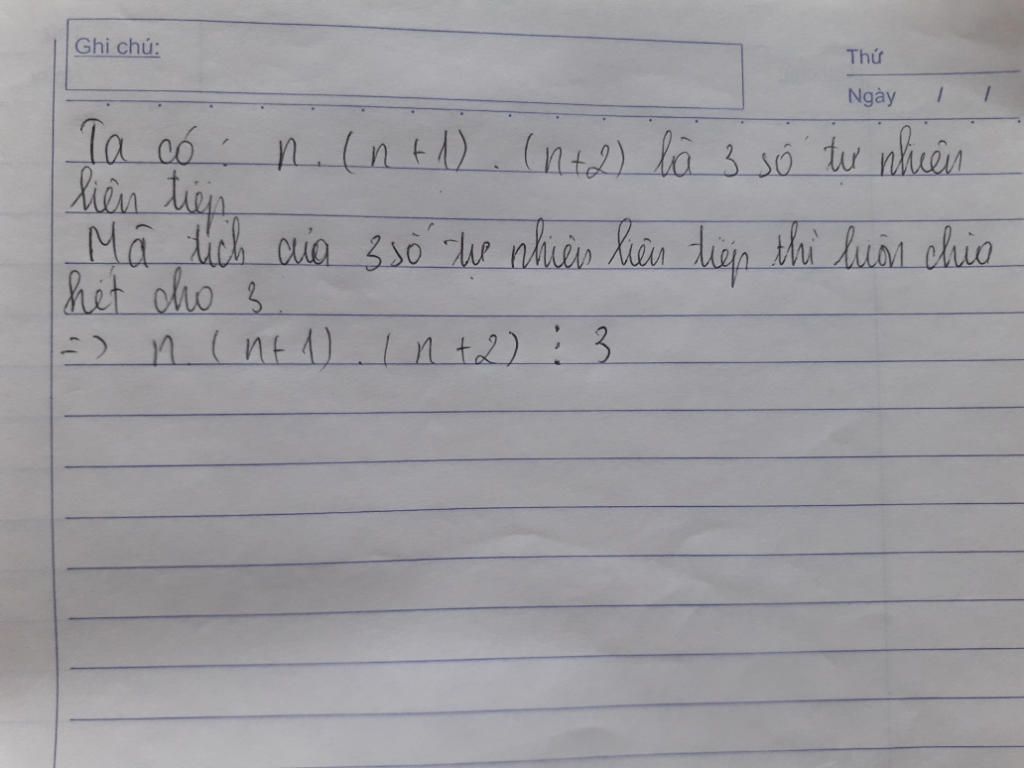 Ghi chú:
Thứ
Ngày / /
Ta có: n.(n+1).(n+2) là 3 số tự nhiên
liên tiếp
Mà tích của 3 số tự nhiên liên tiếp thì luôn chia
hết cho 3.
=> n.(n+1).(n+2) ⋮ 3